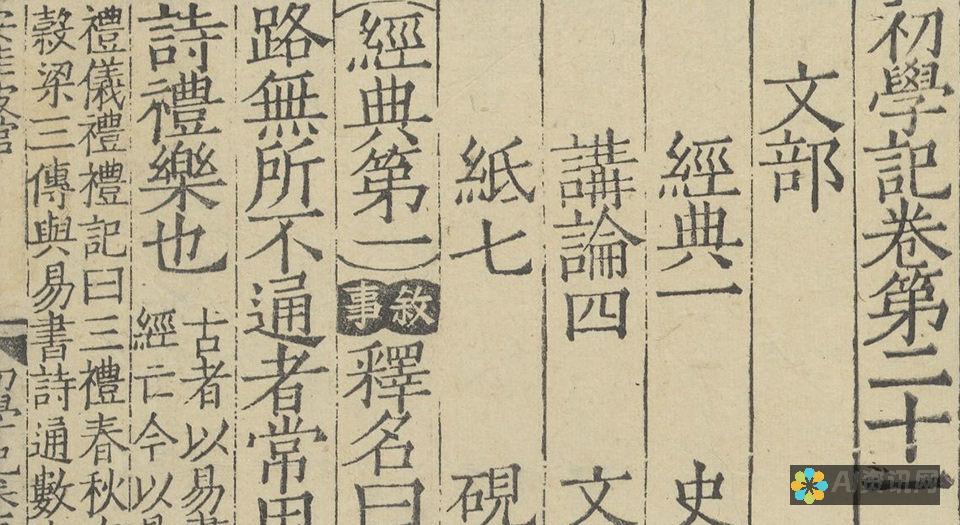 初學記卷第二十
文部
經典一 史
講論四 文
紙七 硯
經典第一 敘事 釋名曰
路無所不通者常用
詩禮樂也 古者以易
經亡今以
禮儀禮禮記曰三禮春秋
榖梁三傳與易書詩通數